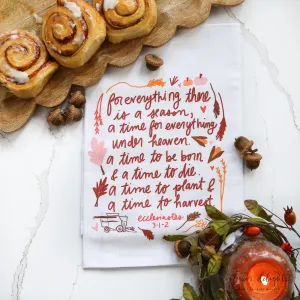 for everything there
is a season,
a time for everything
under heaven.
a time to be born
& a time to die.
a time to plant &
a time to harvest
ecclesiastes
3:1-2